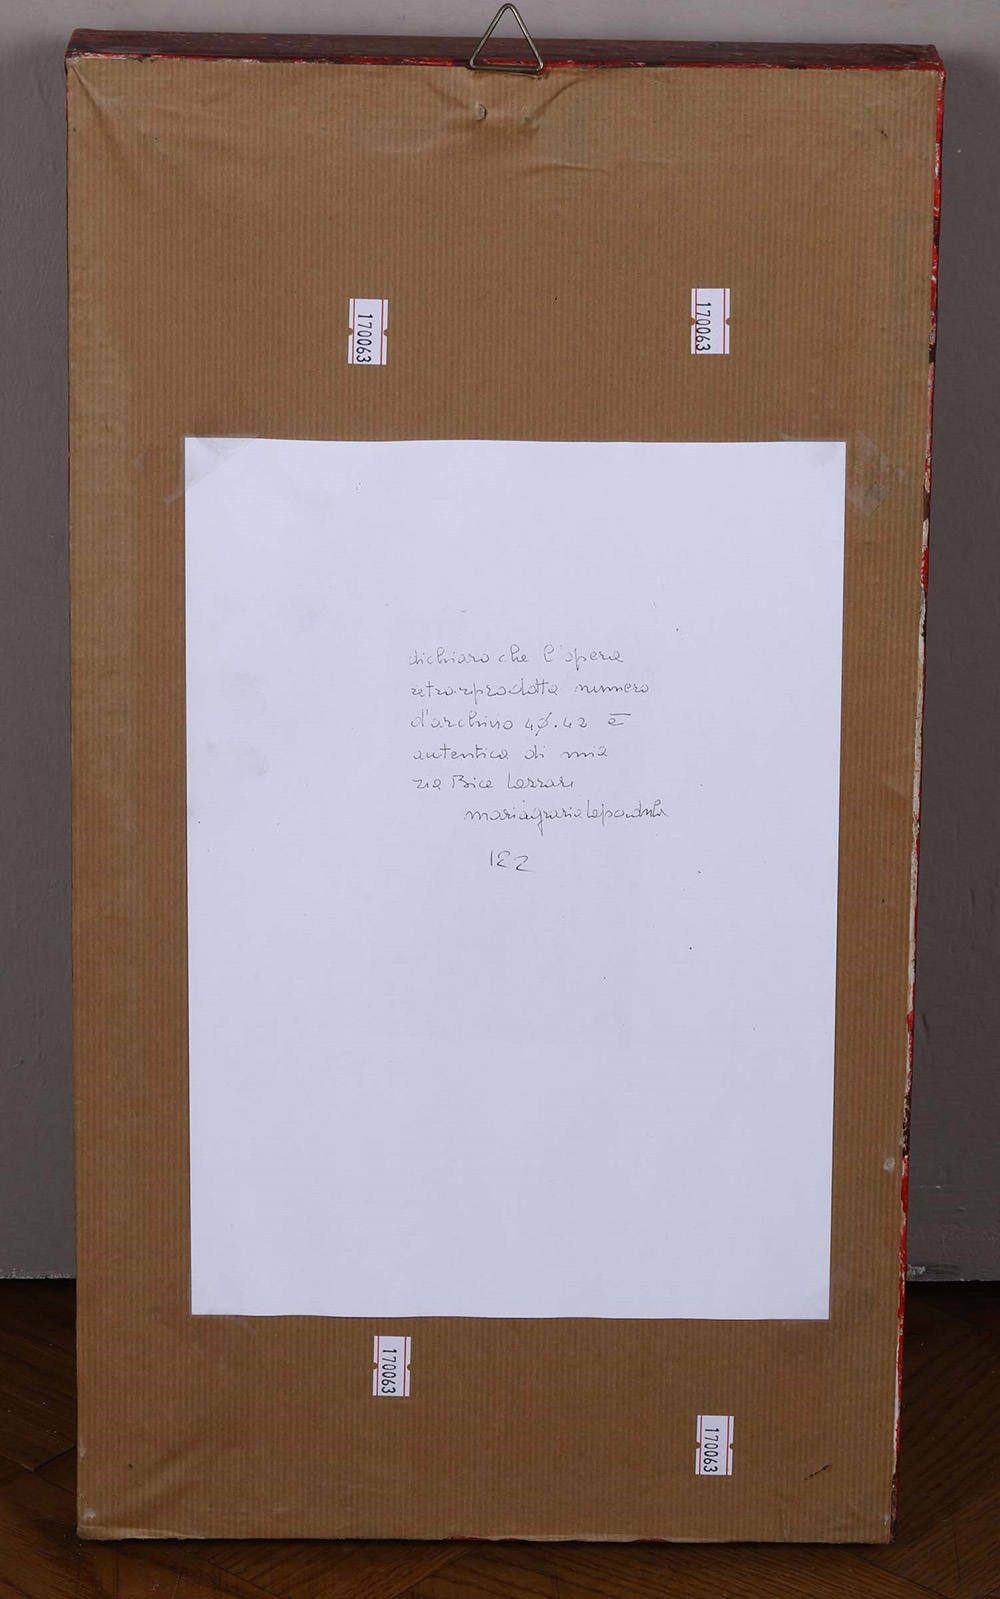 170063
170063
dichiaro che l'opera
retroriprodotta numero
d'archivio 40.42 è
autentica di mia
zia Bice Lazzari
mariagrazia Lapadula
170063
170063